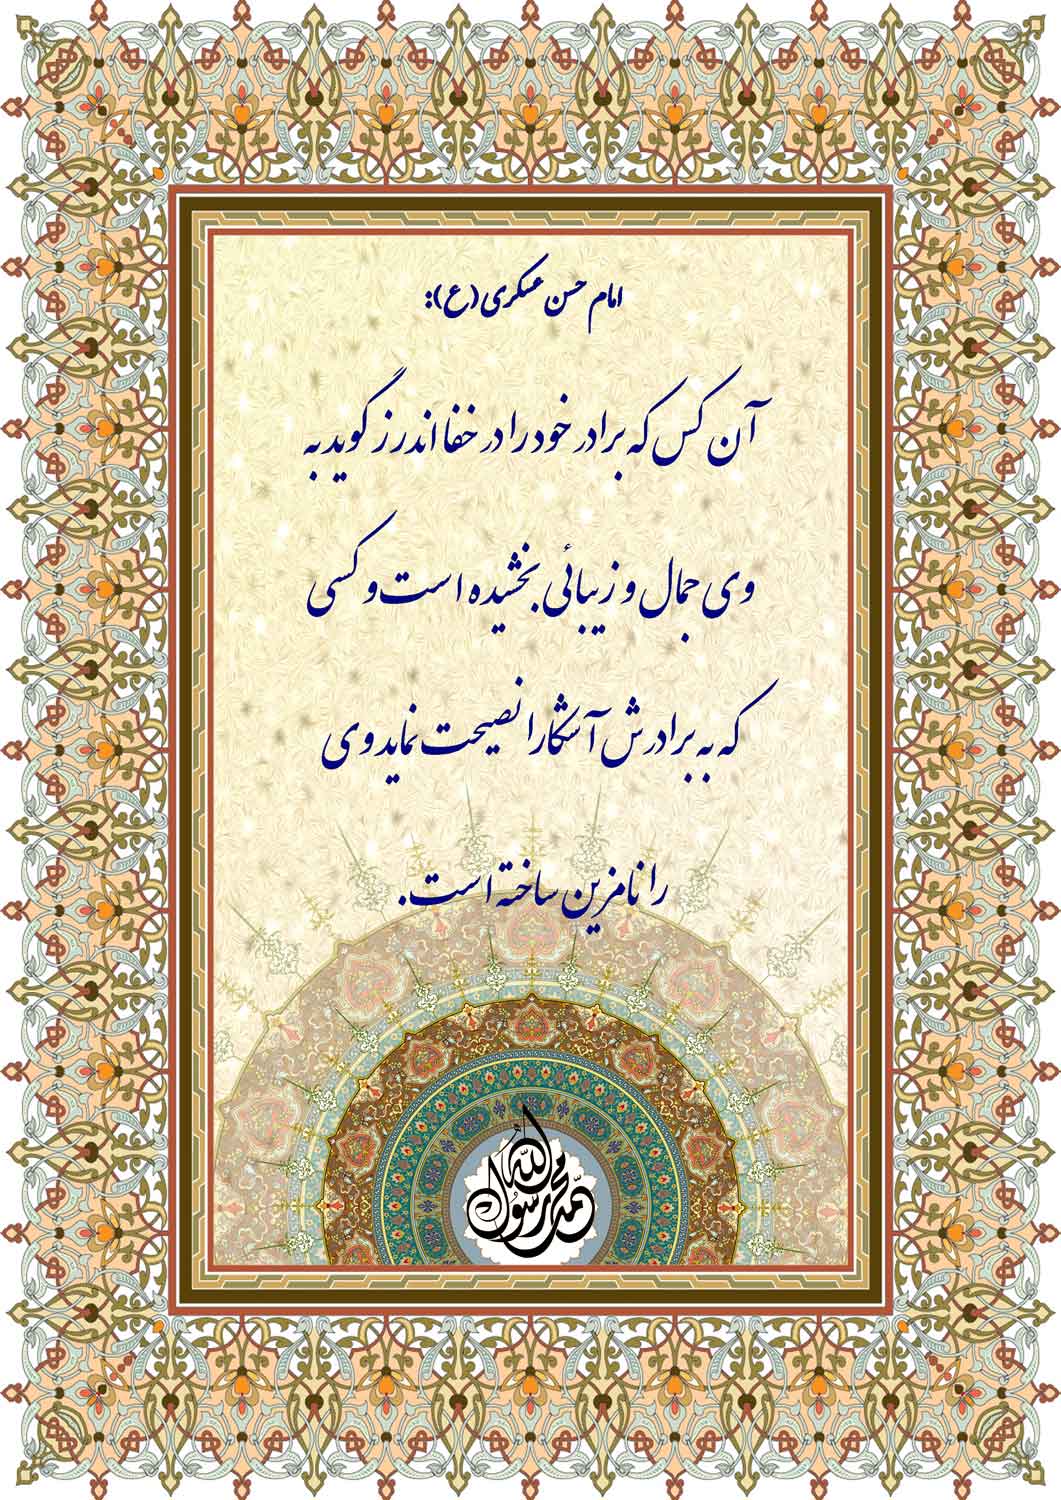 امام حسن عسکری (ع):
آن کس که برادر خود را در خفا اندرز گوید به
وی جمال و زیبائی بخشیده است و کسی
که به برادرش آشکارا نصیحت نماید وی
را نامزین ساخته است.
محمد رسول الله